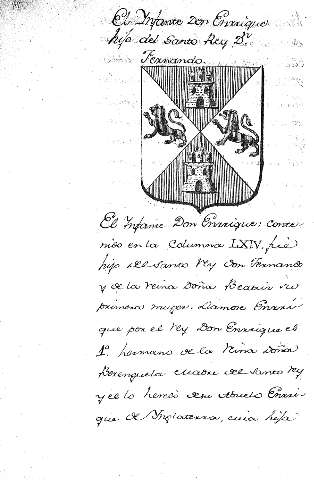 El Infante Don Enrrique
hijo del Santo Rey Dn
Fernando.
El Infame Don Enrrique: conte-
nido en la Columna LXIV, fué
hijo del Santo Rey Don Fernando
y de la reina Doña Beatriz su
primera muger. Llamose Enrri-
que por el Rey Don Enrrique el
1º. hermano de la Reina Doña
Berenguela madre del Santo Rey
y este lo heredó de su Abuelo Enrri-
que de Ynglaterra, cuia hija